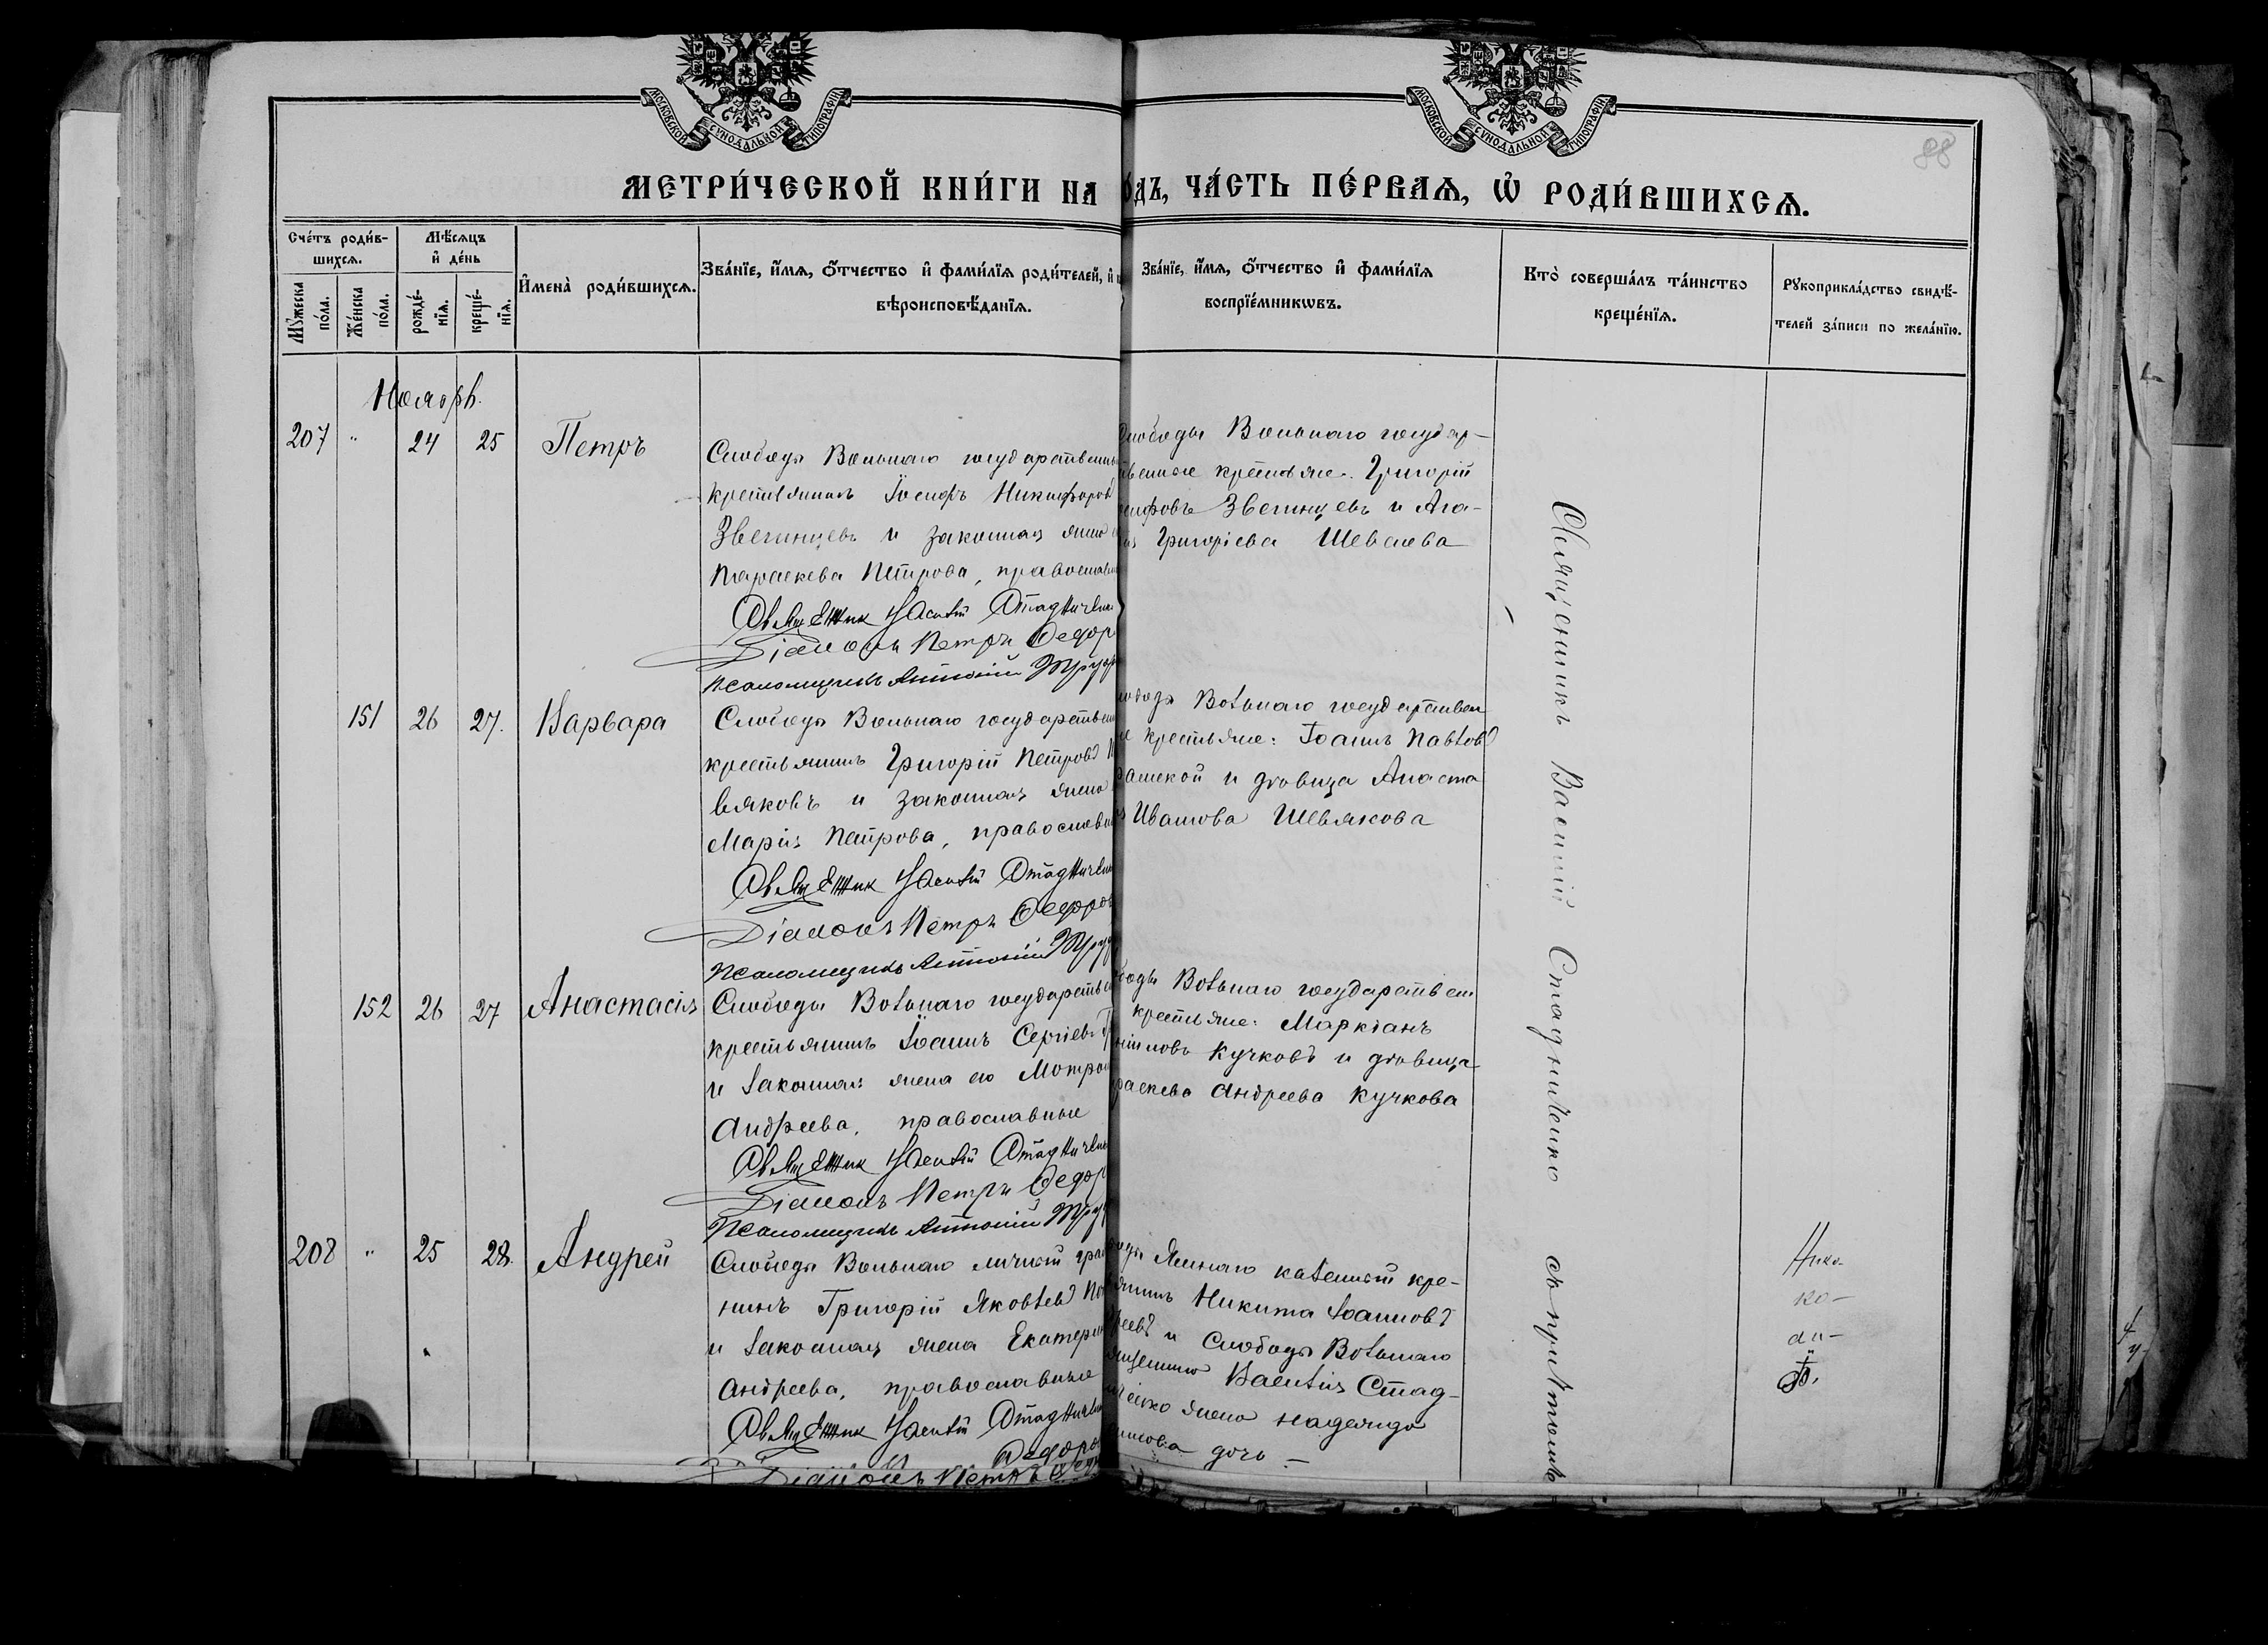 МОСКОВСКОЙ СѴНОДАЛЬНОЙ ТИПОГРАФІИ
МОСКОВСКОЙ СѴНОДАЛЬНОЙ ТИПОГРАФІИ
88
МЕТРИ́ЧЕСКОЙ КНИ́ГИ НА
О́ДЪ, ЧА́СТЬ ПЕ́РВАѦ, Ѡ҆ РОДИ́ВШИХСѦ.
Сче́тъ роди́в-
шихсѧ.
Мѣ́сѧцъ
и҆ де́нь
Мꙋ́жеска
по́ла.
Же́нска
по́ла.
рожде́-
нїѧ.
креще́-
нїѧ.
И҆мена̀ роди́вшихсѧ.
Зва́нїе, и҆́мѧ, ѻ҆́тчество и҆ фами́лїѧ роди́телей, и҆
вѣроисповѣ́данїѧ.
Зва́нїе, и҆́мѧ, ѻ҆́тчество и҆ фами́лїѧ
воспрїе́мникѡвъ.
Кто̀ соверша́лъ та́инство
креще́нїѧ.
Рꙋкоприкла́дство свидѣ́-
телей за́писи по жела́нїю.
Ноябрь.
207 " 24 25 Петръ
Слободы Вольнаго государственн
крестьянинъ Іосифъ Никифоровъ
Звегинцевъ и законная жена
Параскева Петрова, православн
Священник Василій Стадниченк
Діаконъ Петръ Федор
Псаломщикъ Антоній Труд
Слободы Вольнаго государ-
ственные крестьяне: Григорій
сифовъ Звегинцевъ и Ага-
Григоріева Шеваева
151 26 27. Варвара
Слободы Вольнаго государствен
крестьянинъ Григорій Петровъ
вяковъ и законная жена
Марія Петрова, православн
Священник Василій Стадниченк
Діаконъ Петръ Федоров
Псаломщикъ Антоній Труд
ободы Вольнаго государствен
крестьяне: Іоаннъ Павловъ
и дѣвица Анаста
Иванова Шевякова
152 26 27 Анастасія
Слободы Вольнаго государствен
крестьянинъ Іоаннъ Сергіевъ
и законная жена его Матрон
Андреева, православные
Священник Василій Стадниченк
Діаконъ Петръ Федор
Псаломщикъ Антоній Труд
боды Вольнаго государствен
крестьяне: Маркіанъ
Кучковъ и дѣвица
раскева Андреева Кучкова
208 " 25 28. Андрей
Слободы Вольнаго личный граж
нинъ Григорій Яковлевъ
и законная жена Екатерин
Андреева, православные
Священник Василій Стадниченк
Федоро
Діаконъ Петръ Федо
кре-
Никита Іоанновъ
и Слободы Вольнаго
Василія Стад-
ченко жена Надежда
дочь –
Священникъ Василій Стадниченко съ причтомъ